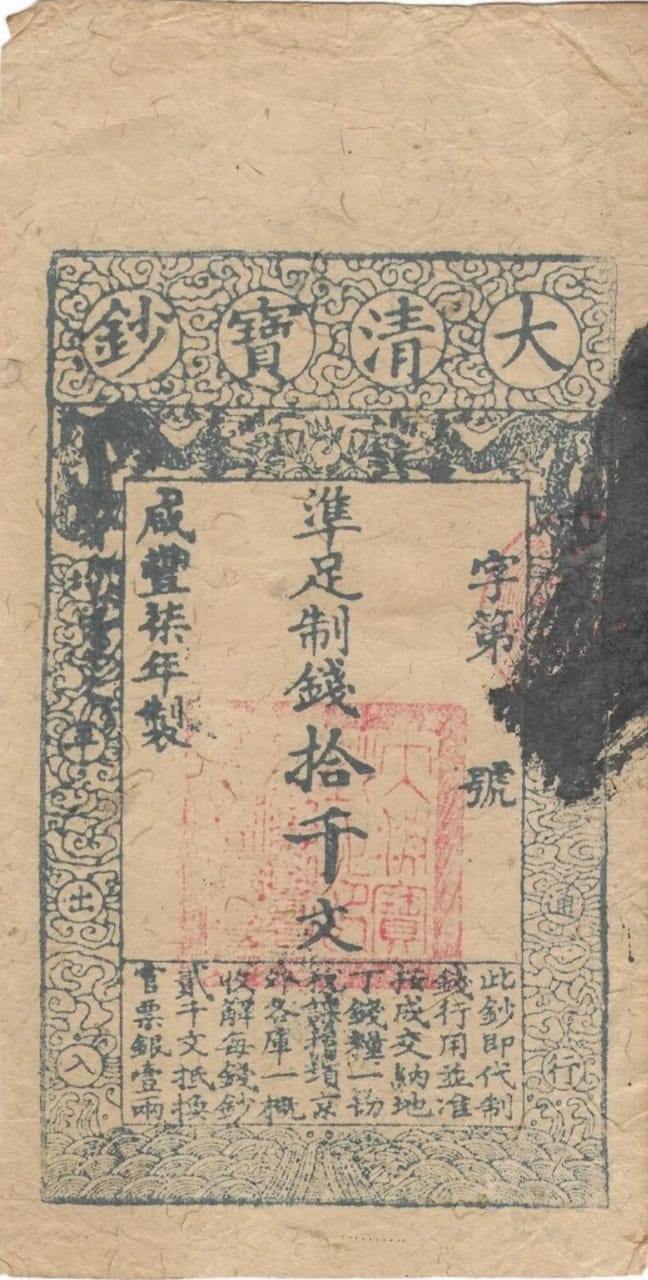 大清寶鈔
通行
字第 號
準足制錢拾千文
咸豐柒年製
平出入
此鈔即代制
錢行用並准
按成交納地
丁錢糧一切
稅課捐項京
外各庫一概
收解每錢鈔
貳千文抵換
官票銀壹兩